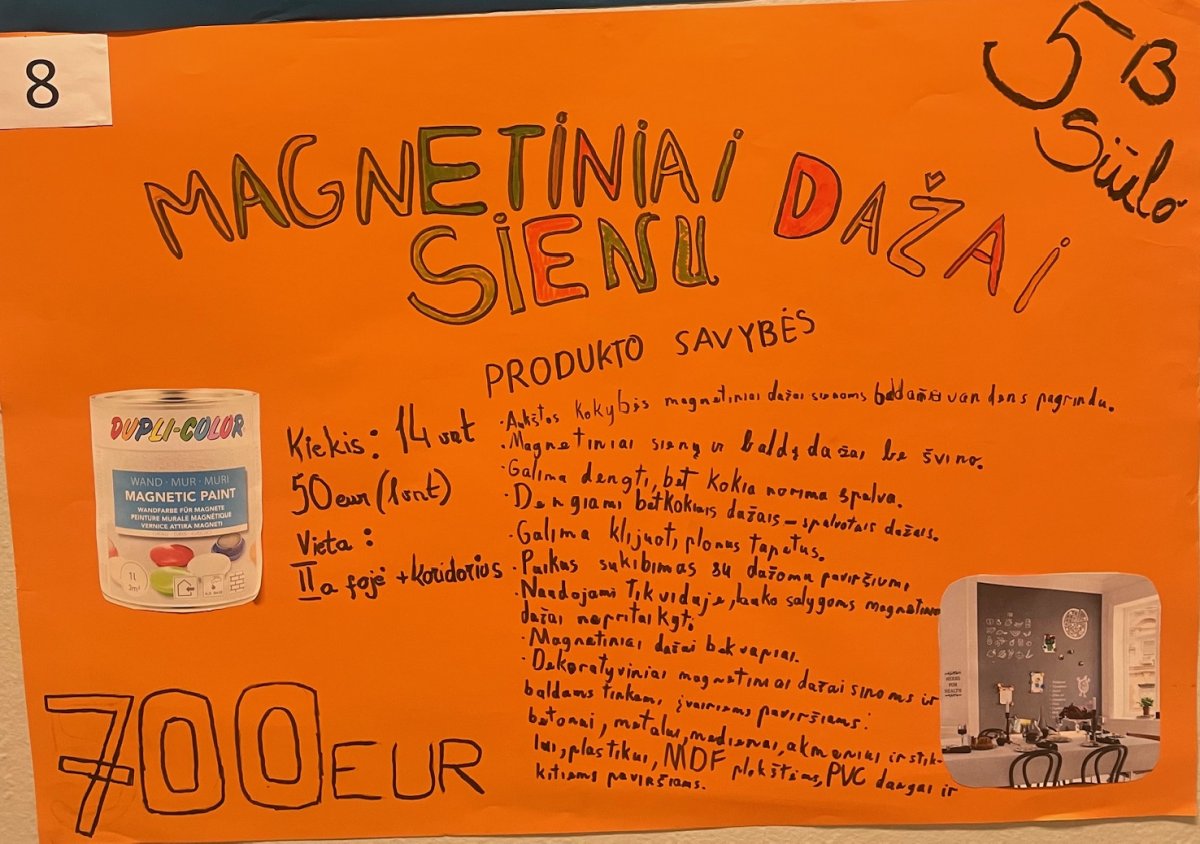 8
5B
Siūlo
MAGNETINIAI DAŽAI
SIENŲ
PRODUKTO SAVYBĖS
DUPLI-COLOR
WAND · MUR · MURI
MAGNETIC PAINT
WANDFARBE FÜR MAGNETE
PEINTURE MURALE MAGNÉTIQUE
VERNICE ATTIRA MAGNETI
1L
2m²
Kiekis: 14 vnt
50 eur (1vnt)
Vieta:
II a fojė + koridorius
· Aukštos kokybės magnetiniai dažai vandens pagrindu.
· Magnetiniai sienų ir baldų dažai be švino.
· Galima dengti, bet kokia norima spalva.
· Dengiami betkokiais dažais – spalvotais dažais.
· Galima klijuoti, plonus tapetus.
· Puikus sukibimas su dažomu paviršiumi,
· Naudojami tik viduje, lauko salygoms magnetiniai
dažai nepritaikyti.
· Magnetiniai dažai bekvapiai.
· Dekoratyviniai magnetiniai dažai sinoms ir
baldams tinkami įvairiems paviršiams:
betonui, metalui, medienai, akmeniui ir stik-
lui, plastikui, MDF plokštėms, PVC dangai ir
kitiems paviršiams.
700 EUR